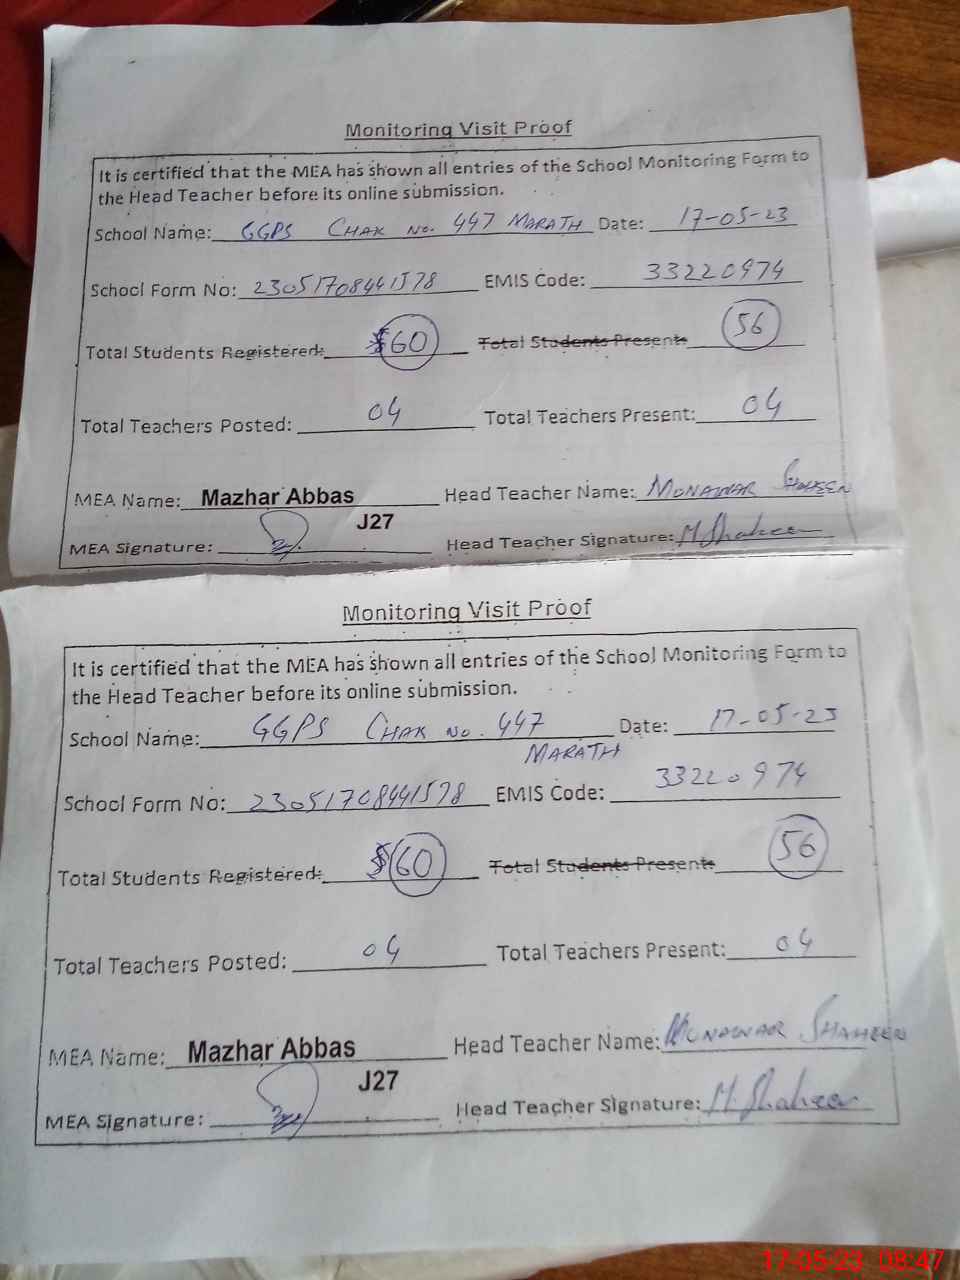 Monitoring Visit Proof
It is certified that the MEA has shown all entries of the School Monitoring Form to
the Head Teacher before its online submission.
School Name: GGPS CHAK NO. 447 MARATH Date: 17-05-23
School Form No: 23051708441578 EMIS Code: 33220974
Total Students Registered: 60 Total Students Present: 56
Total Teachers Posted: 04 Total Teachers Present: 04
MEA Name: Mazhar Abbas Head Teacher Name: MUNAWAR SHAHEEN
J27
MEA Signature: Head Teacher Signature: M Shaheen
Monitoring Visit Proof
It is certified that the MEA has shown all entries of the School Monitoring Form to
the Head Teacher before its online submission.
School Name: GGPS CHAK NO. 447 Date: 17-05-23
MARATH
School Form No: 23051708441578 EMIS Code: 33220974
Total Students Registered: 60 Total Students Present: 56
Total Teachers Posted: 04 Total Teachers Present: 04
MEA Name: Mazhar Abbas Head Teacher Name: MUNAWAR SHAHEEN
J27
MEA Signature: Head Teacher Signature: M. Shaheen
17-05-23 08:47